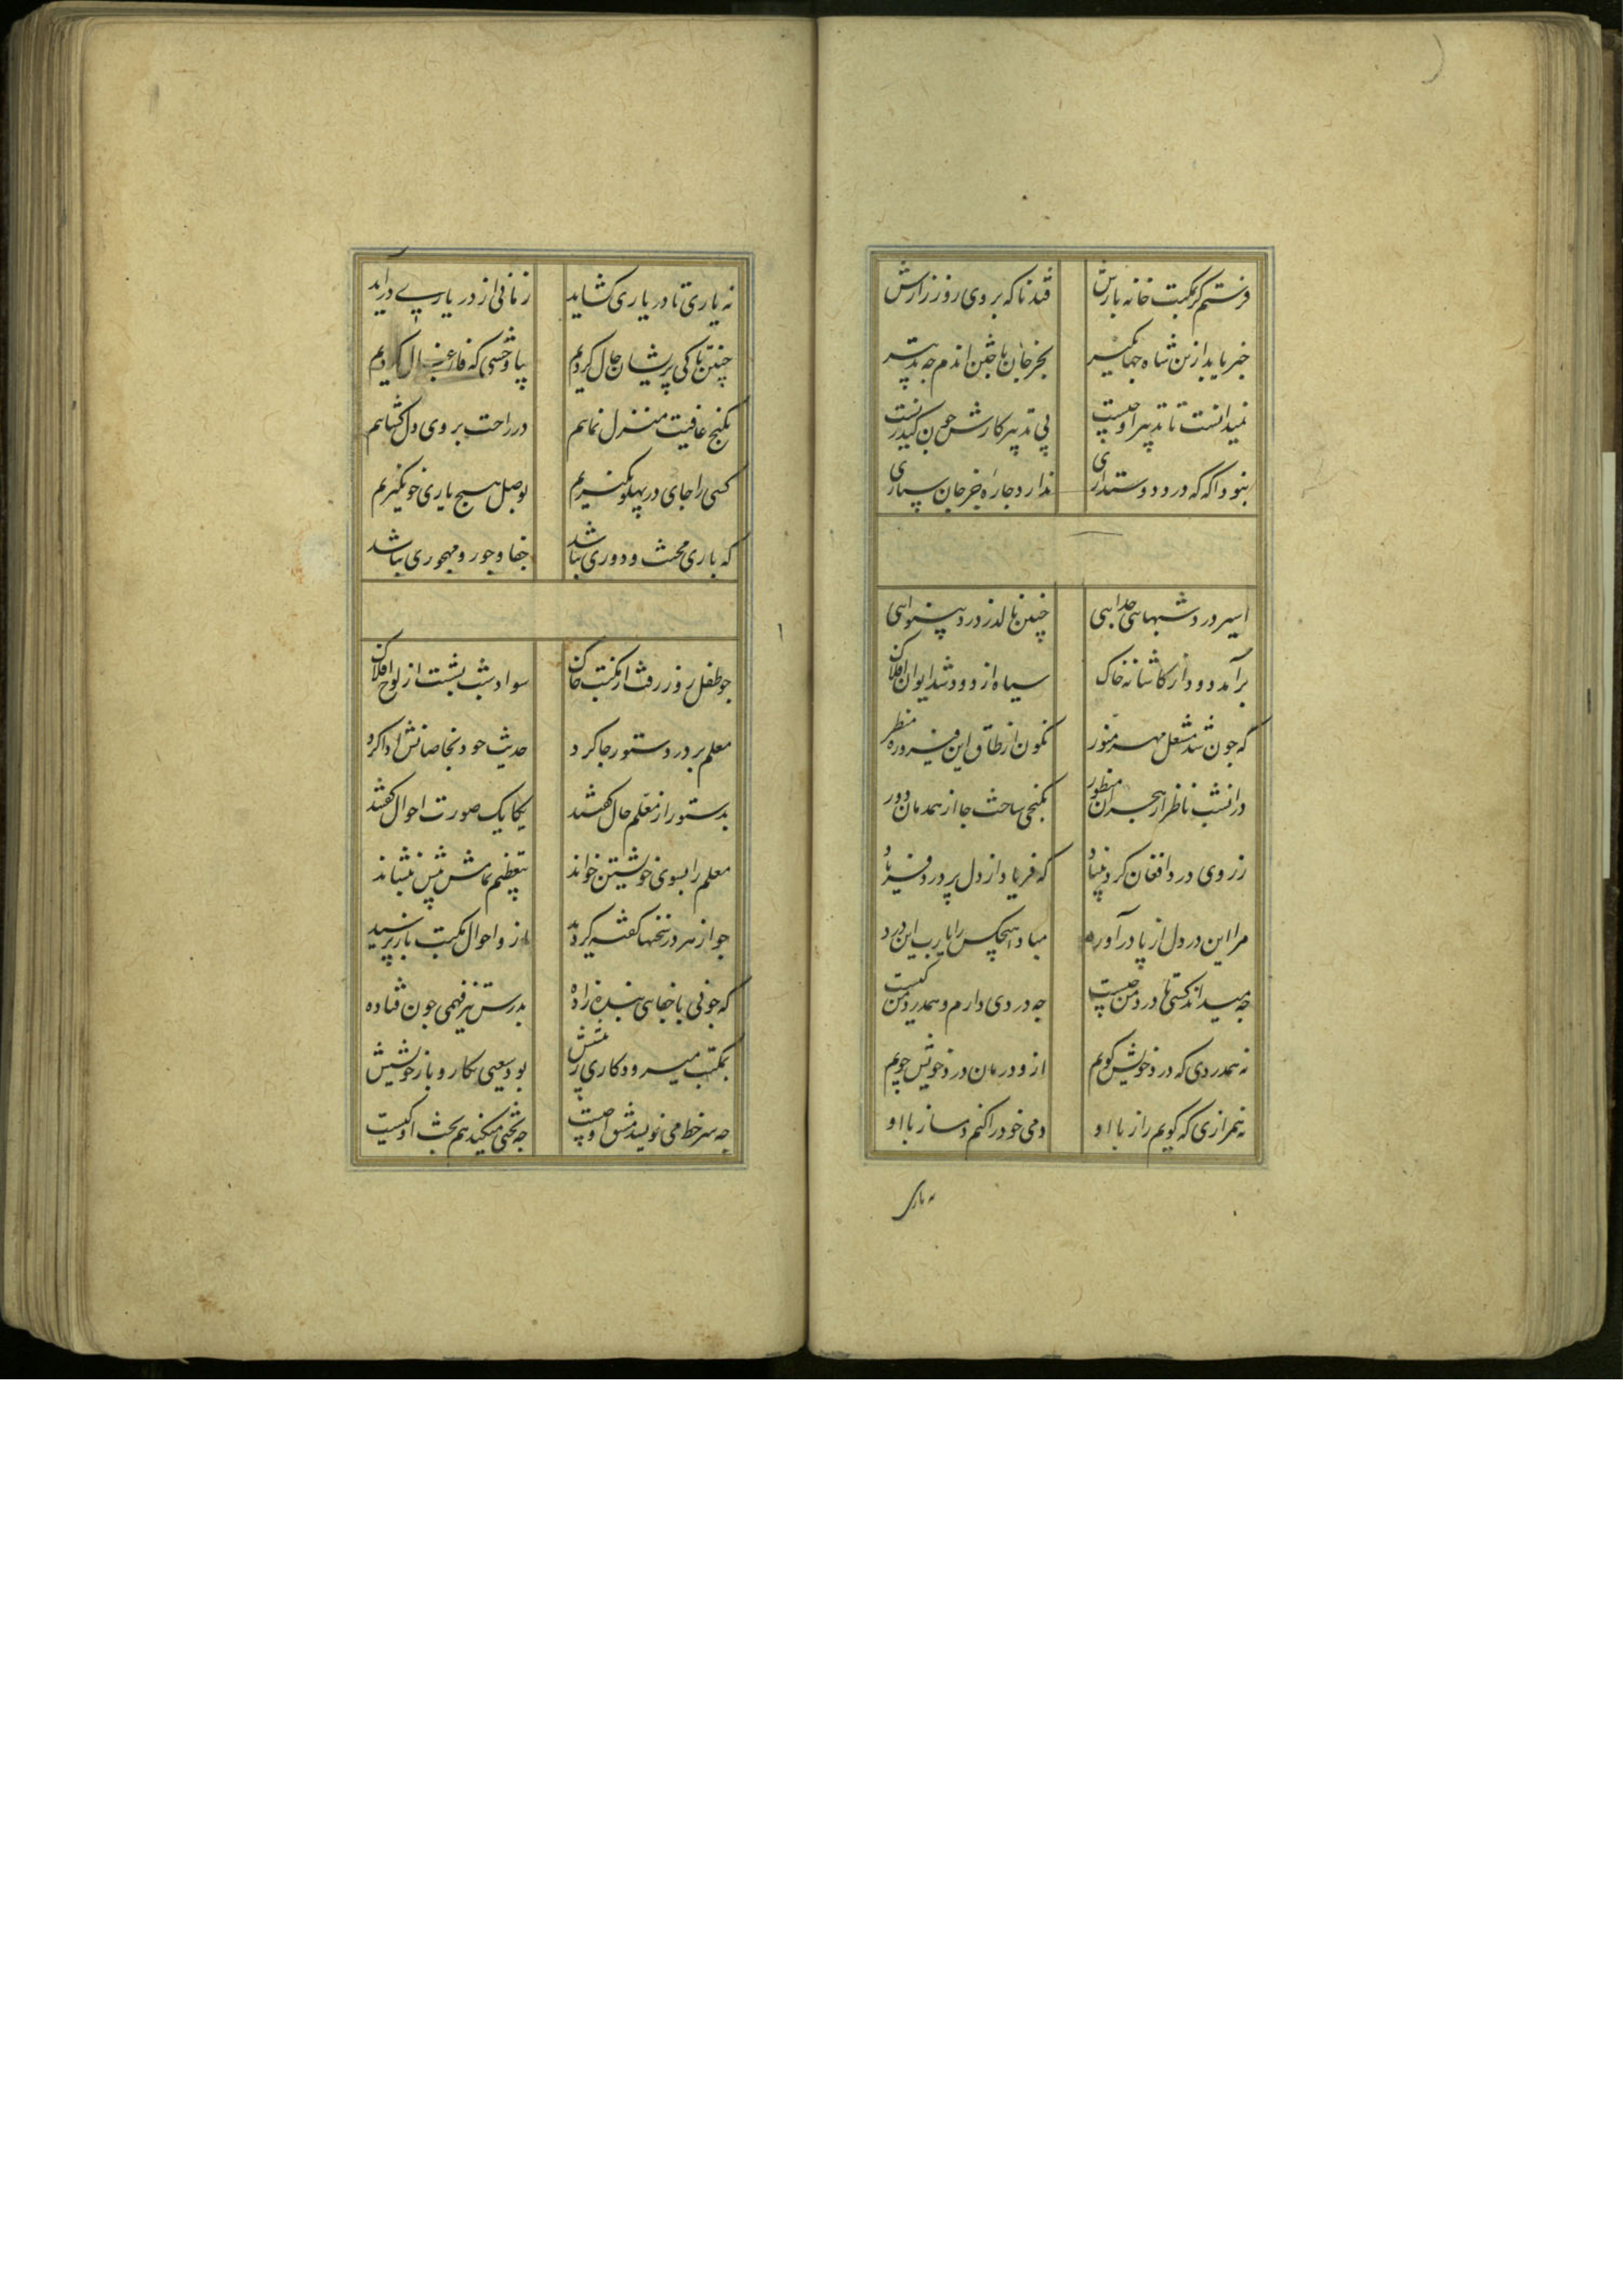 فرستم گر بمکتب خانه بازش فتد ناگه بروی روز رازش
خبر یابد ازین شاه جهانگیر بجز جان باختن اندم چه تدبیر
نمیدانست تا تدبیر او چیست پی تدبیر کارش چون کند زیست
بنود اگه که درد دوستداری ندارد چاره جز جان سپاری
اسیر درد شبهای جدایی چنین نالد ز درد بینوایی
برآمد دود از کاشانه خاک سیاه از دود شد ایوان افلاک
که چون شد مشعل مهر منور نکون از طاق این فیروزه منظر
در انشب ناظر از هجران منظور بکنجی ساخت جا از همدمان دور
ز روی درد افغان کرد بنیاد که فریاد از دل پر درد فریاد
مرا این درد دل از پا در آورد مباد هیچکس را یارب این درد
چه میداند کسی تا درد من چیست چه دردی دارم و همدرد من کیست
نه همدردی که درد خویش کویم ازو درمان درد خویش جویم
نه همرازی که کویم راز با او دمی خود را کنم دمساز با او
نه یاری
نه یاری تا در یاری کشاید زمانی از در یاری درآید
چنین تا کی پریشان حال کردیم بیا وحشی که فارغ بال کردیم
بکنج عافیت منزل نماییم در راحت بروی دل کشاییم
کسی را جای در پهلو نکیریم بوصل هیچ یاری خو نکیریم
که یاری محنت و دوری نباشد جفا و جور و مهجوری نباشد
چو طفل روز رفت از مکتب خاک سواد شب بشست از لوح افلاک
معلم بر در دستور جا کرد حدیث خود بخاصانش ادا کرد
بدستور از معلم حال کفتند یکایک صورت احوال کفتند
معلم را بسوی خویشتن خواند بتعظیم تمامش پیش بنشاند
چو از هر در سخنها کفته کردید ازو احوال مکتب باز پرسید
که چونی با جفای بنده زاده بدرس تیز فهمی چون فتاده
بمکتب میرود کاری ز پیشش بود سعیی بکار و بار خویشش
چه سر خط می نویسد مشق او چیست چه بحثی میکند هم بحث او کیست